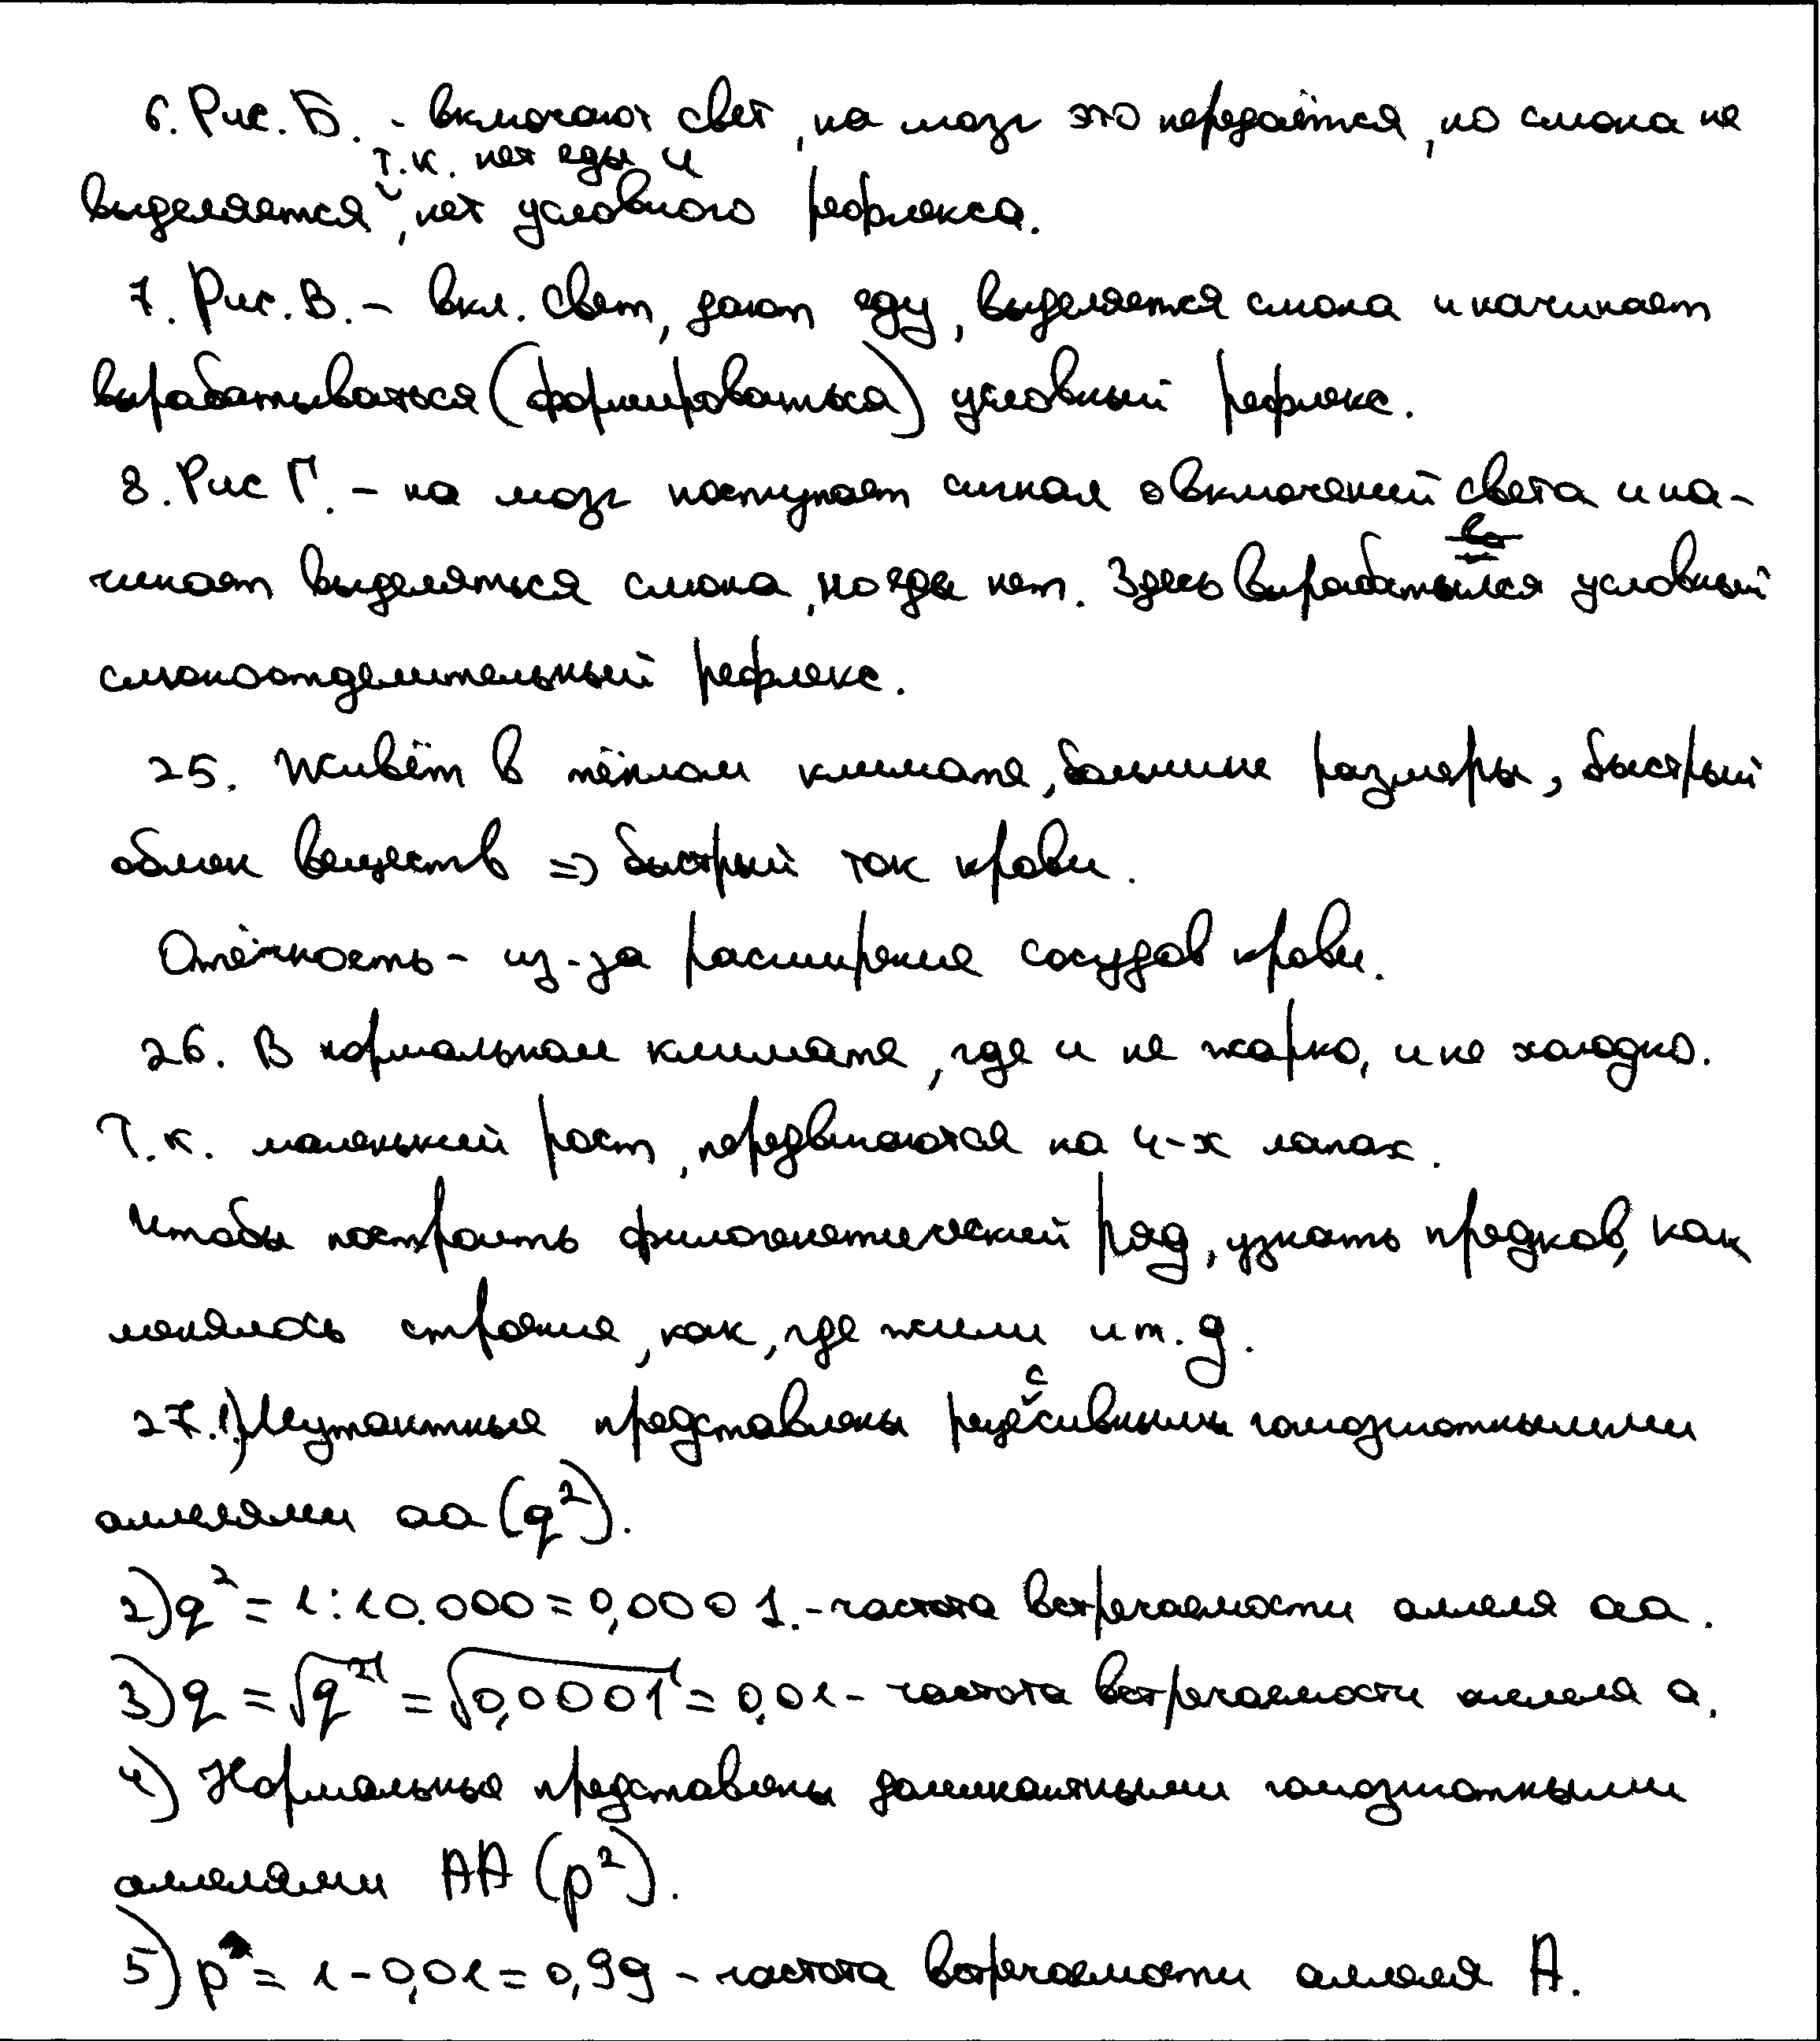 6. Рис. Б. - включают свет, на мозг это передаётся, но слюна не
т.к. нет еды и
выделяется, нет условного рефлекса.
7. Рис. В. - вкл. свет, дают еду, выделяется слюна и начинает
вырабатываться (формироваться) условный рефлекс.
8. Рис Г. - на мозг поступает сигнал о включений света и на-
чинает выделяться слюна, но еды нет. Здесь выработался условный
слюноотделительный рефлекс.
25. Живёт в тёплом климате, большие размеры, быстрый
обмен веществ => быстрый ток крови.
Отёчность - из-за расширение сосудов крови.
26. В нормальном климате, где и не жарко, и не холодно.
Т.к. маленький рост, передвигаются на 4-х лапах.
Чтобы построить филогенетический ряд, узнать предков, как
менялось строение, как, где жили и т.д.
27.1) Мутантные представлены рецессивными гомозиготными
аллелями аа (q²).
2) q² = 1:10.000 = 0,0001. - частота встречаемости аллеля аа.
3) q = √q² = √0,0001 = 0,01 - частота встречаемости аллеля а.
4) Нормальные представлены доминантными гомозиготными
аллелями АА (p²).
5) p = 1 - 0,01 = 0,99 - частота встречаемости аллеля А.